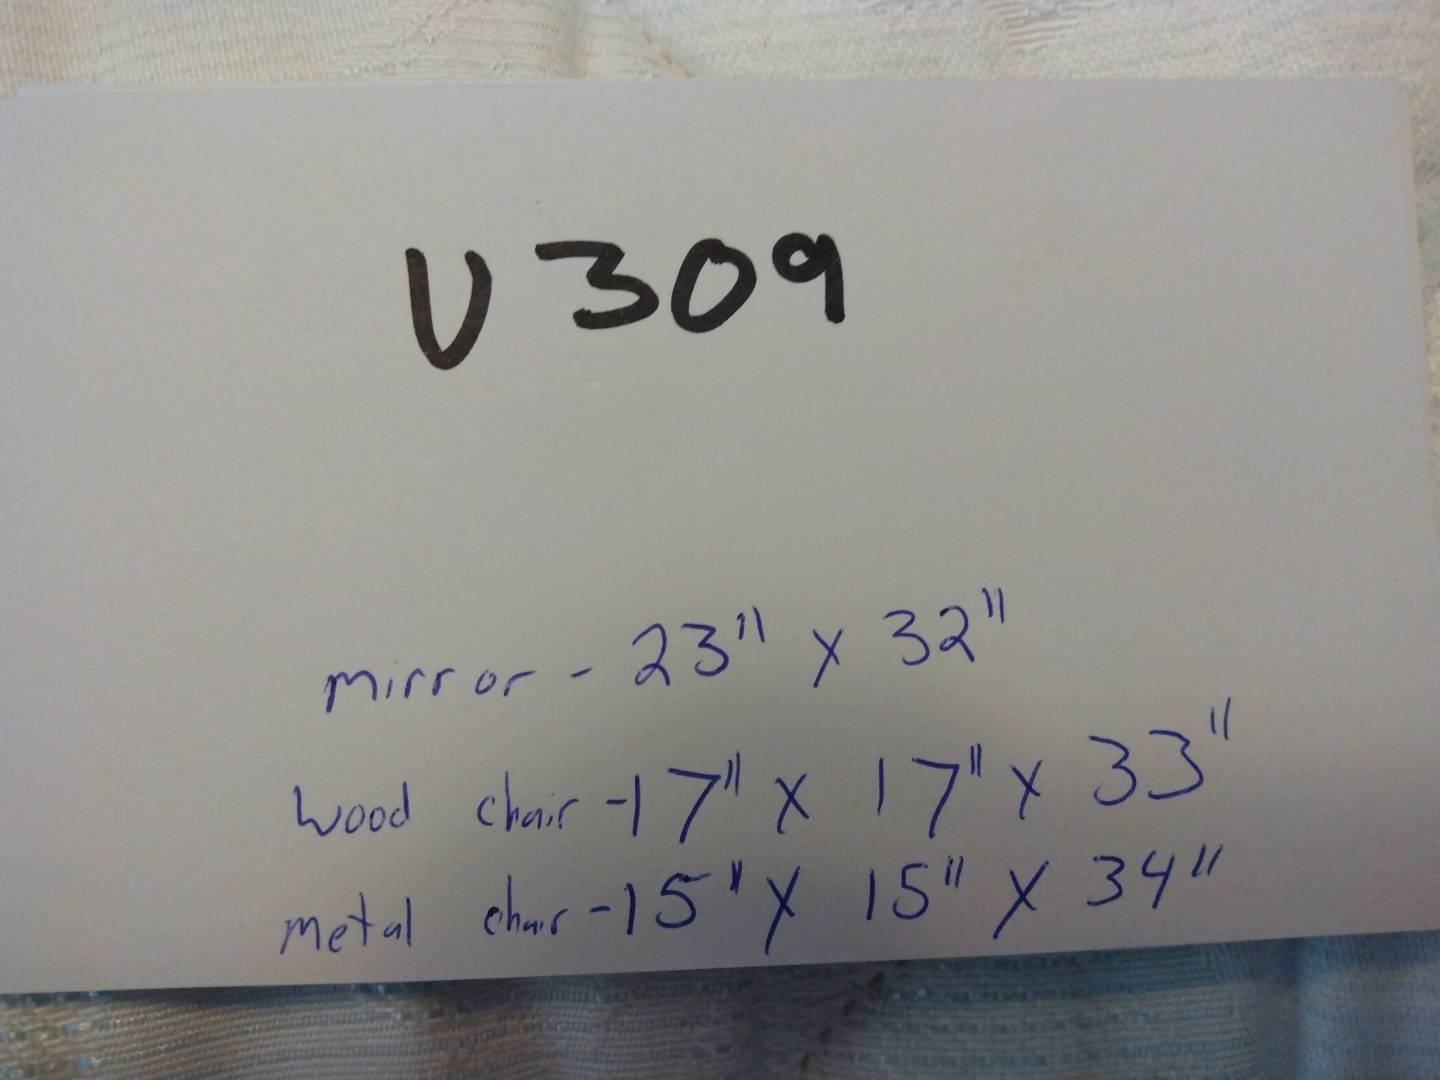 U 309
mirror - 23" x 32"
wood chair - 17" x 17" x 33"
metal chair - 15" x 15" x 34"